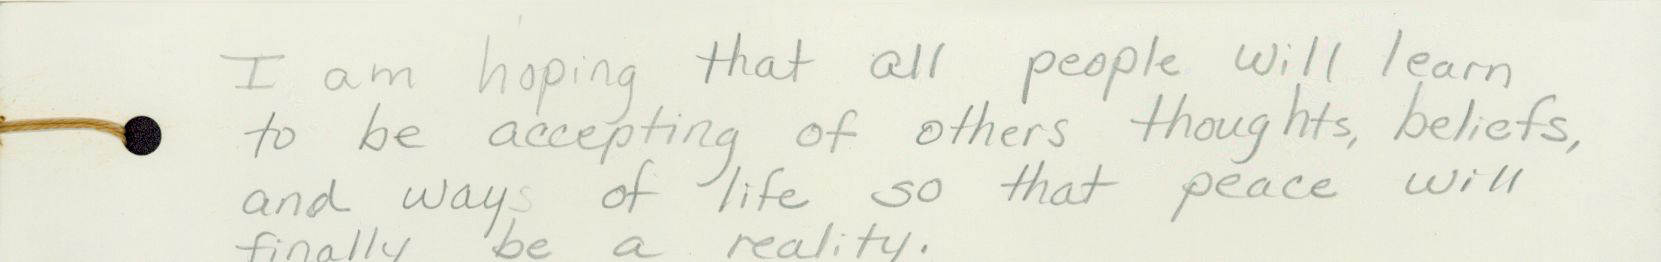 I am hoping that all people will learn
to be accepting of others thoughts, beliefs,
and ways of life so that peace will
finally be a reality.